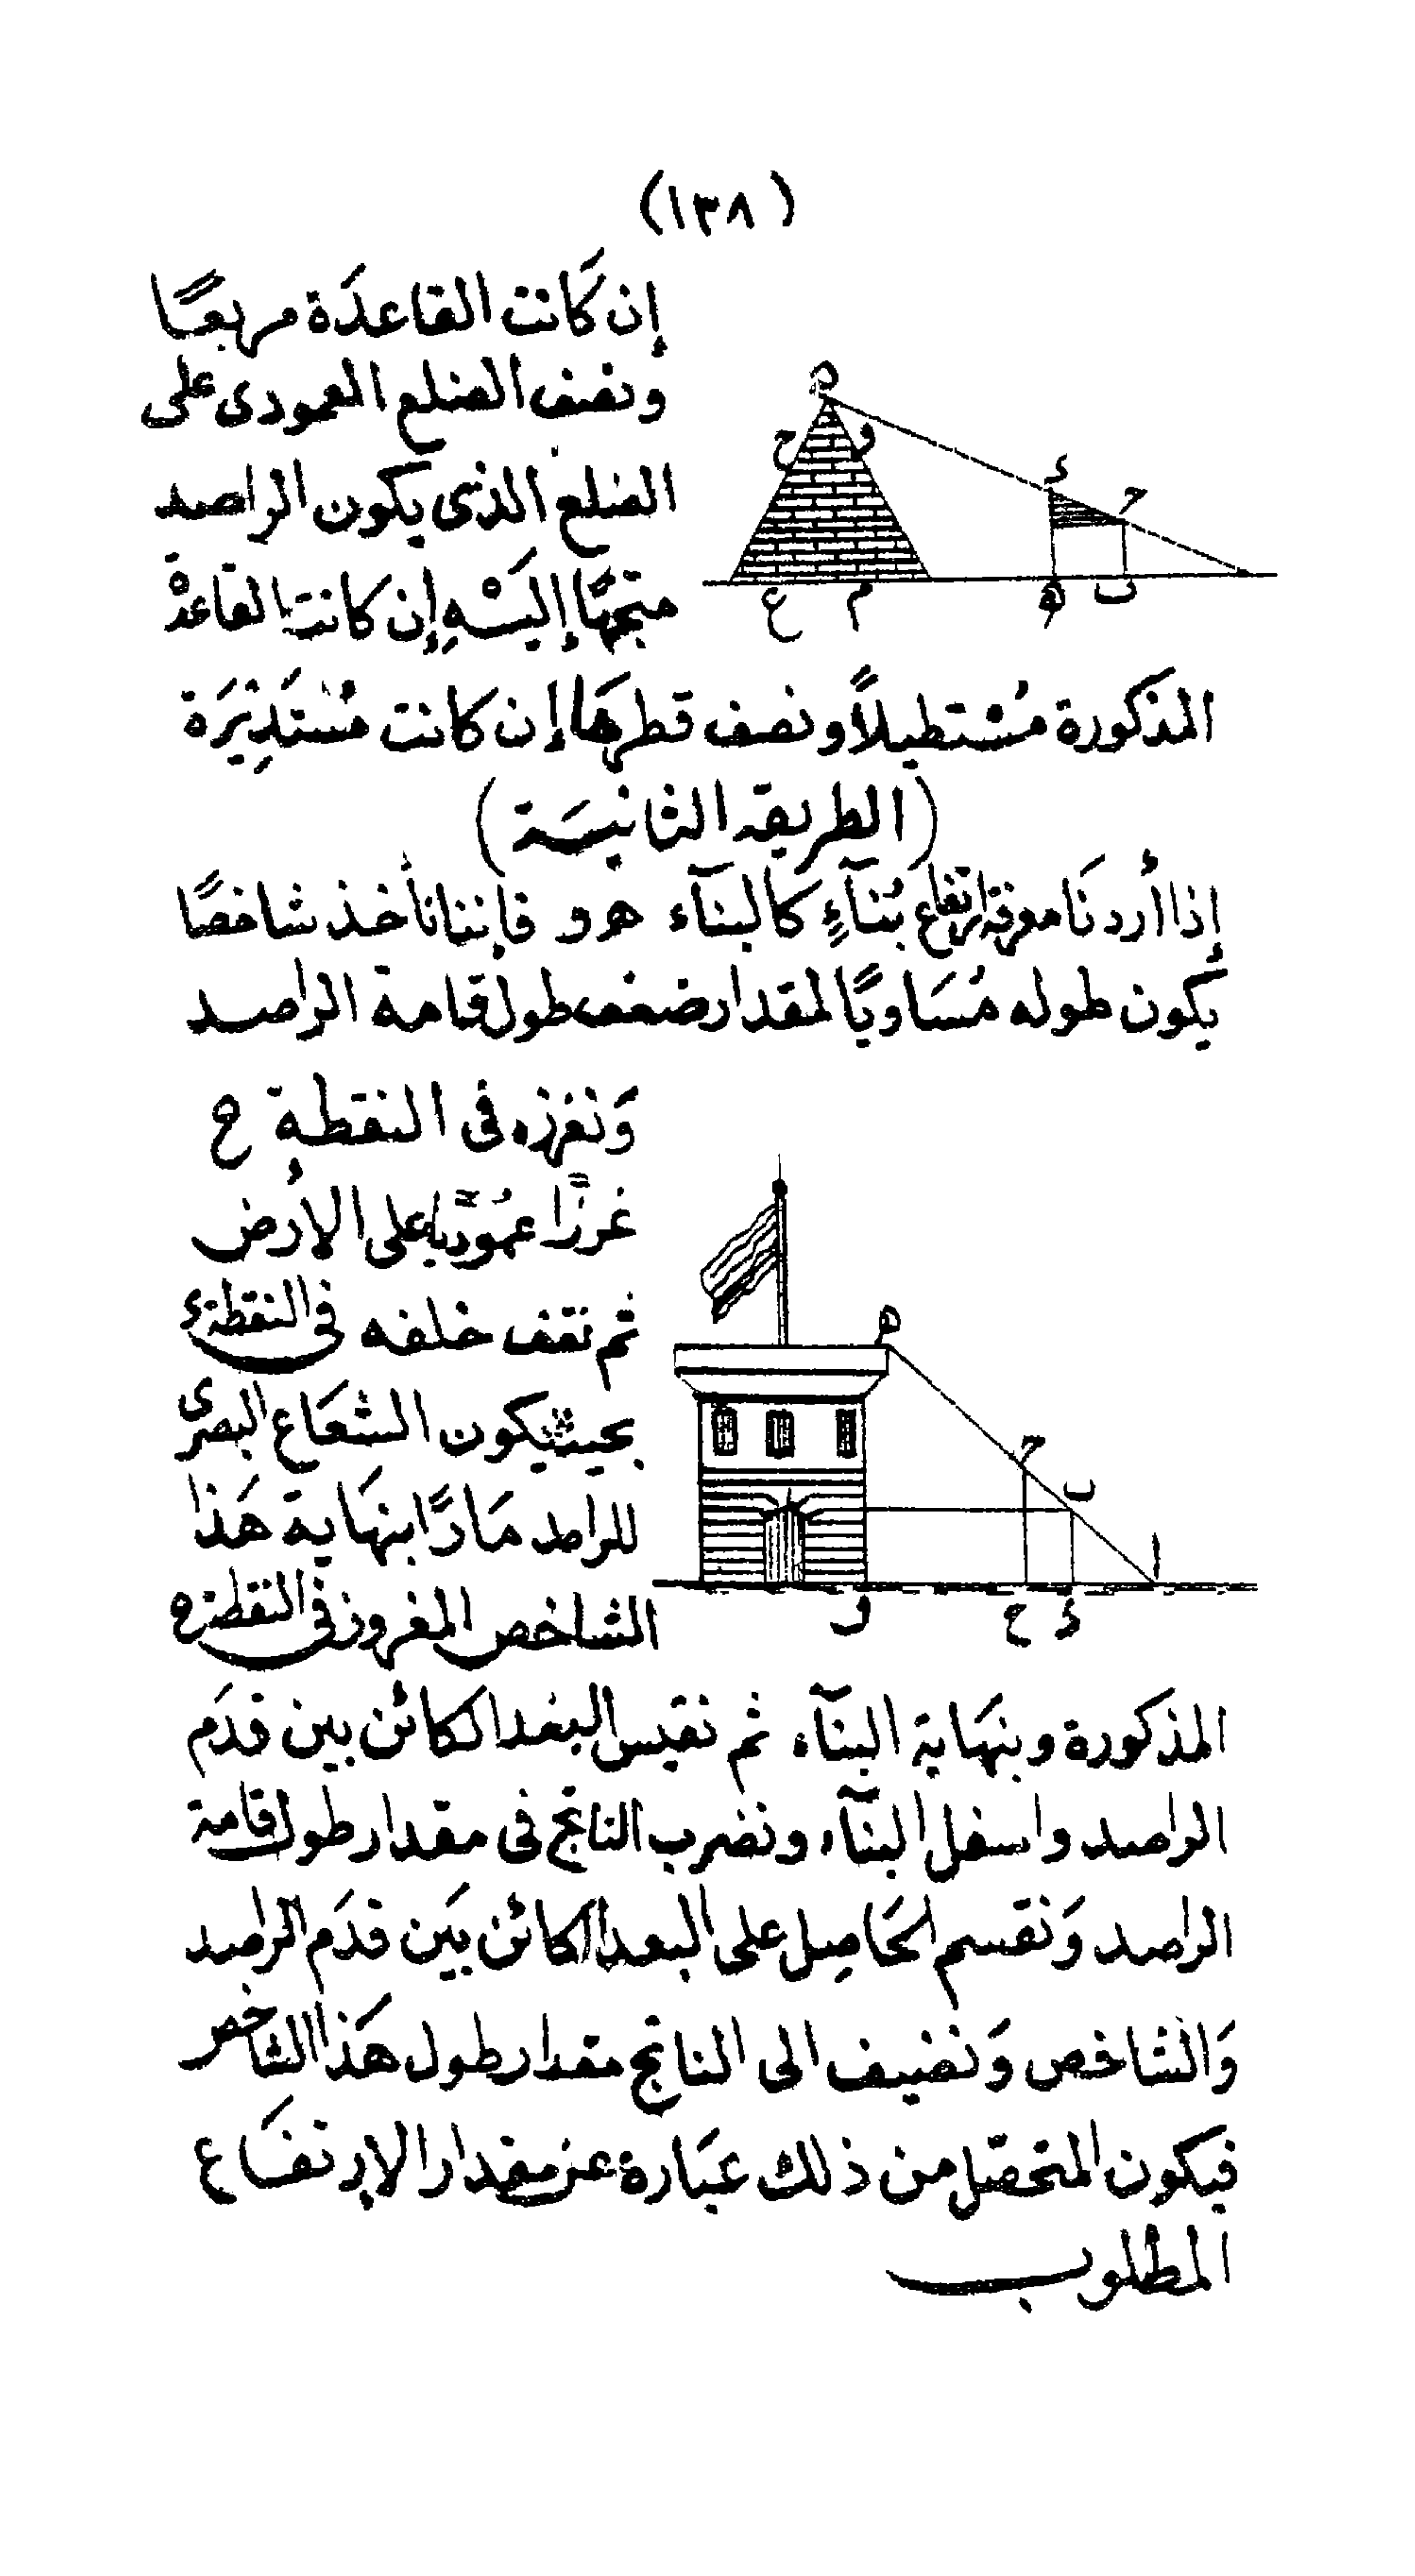 (١٣٨)
إن كَانت القاعدَة مربعًا
ونصف الضلع العمودى على
الضلع الذى يكون الراصد
متجهًا إليَسْهِ إن كانت القاعدة
ه
ح
و
د
ح
ع
م
ه
ب
المذكورة مُسْتطيلاً ونصف قطرهَا إن كانت مُستَدِيْرَة
(الطريقة الثانيَة)
إذا أردنَا معرفة ارتفاع بُنَآءٍ كالبنَآء هو فإننا نأخذ شاخصًا
يكون طوله مُسَاويًا لمقدار ضعف طول قامة الراصد
وَنغرزه فى النقطة ح
غرزًا عمُوديًا على الأرض
ثم نقف خلفه فى النقطة د
بحيث يكون الشعَاع البصرى
للراصد مَارًا بنهَاية هَذا
الشاخص المغروز فى النقطة ه
ه
ح
ب
ا
و
ح
د
المذكورة وبنهَاية البنآء ثم نقيس البعد الكائن بين قدَم
الراصد واسفل البنآء ونضرب الناتج فى مقدار طول قامة
الراصد وَنقسم الحَاصِل على البعد الكائن بَين قدَم الراصد
وَالشاخص وَنضيف الى الناتج مقدار طول هَذا الشاخص
فيكون المتحصّل من ذلك عبَارة عن مقدار الإرتفَاع
المطلوب